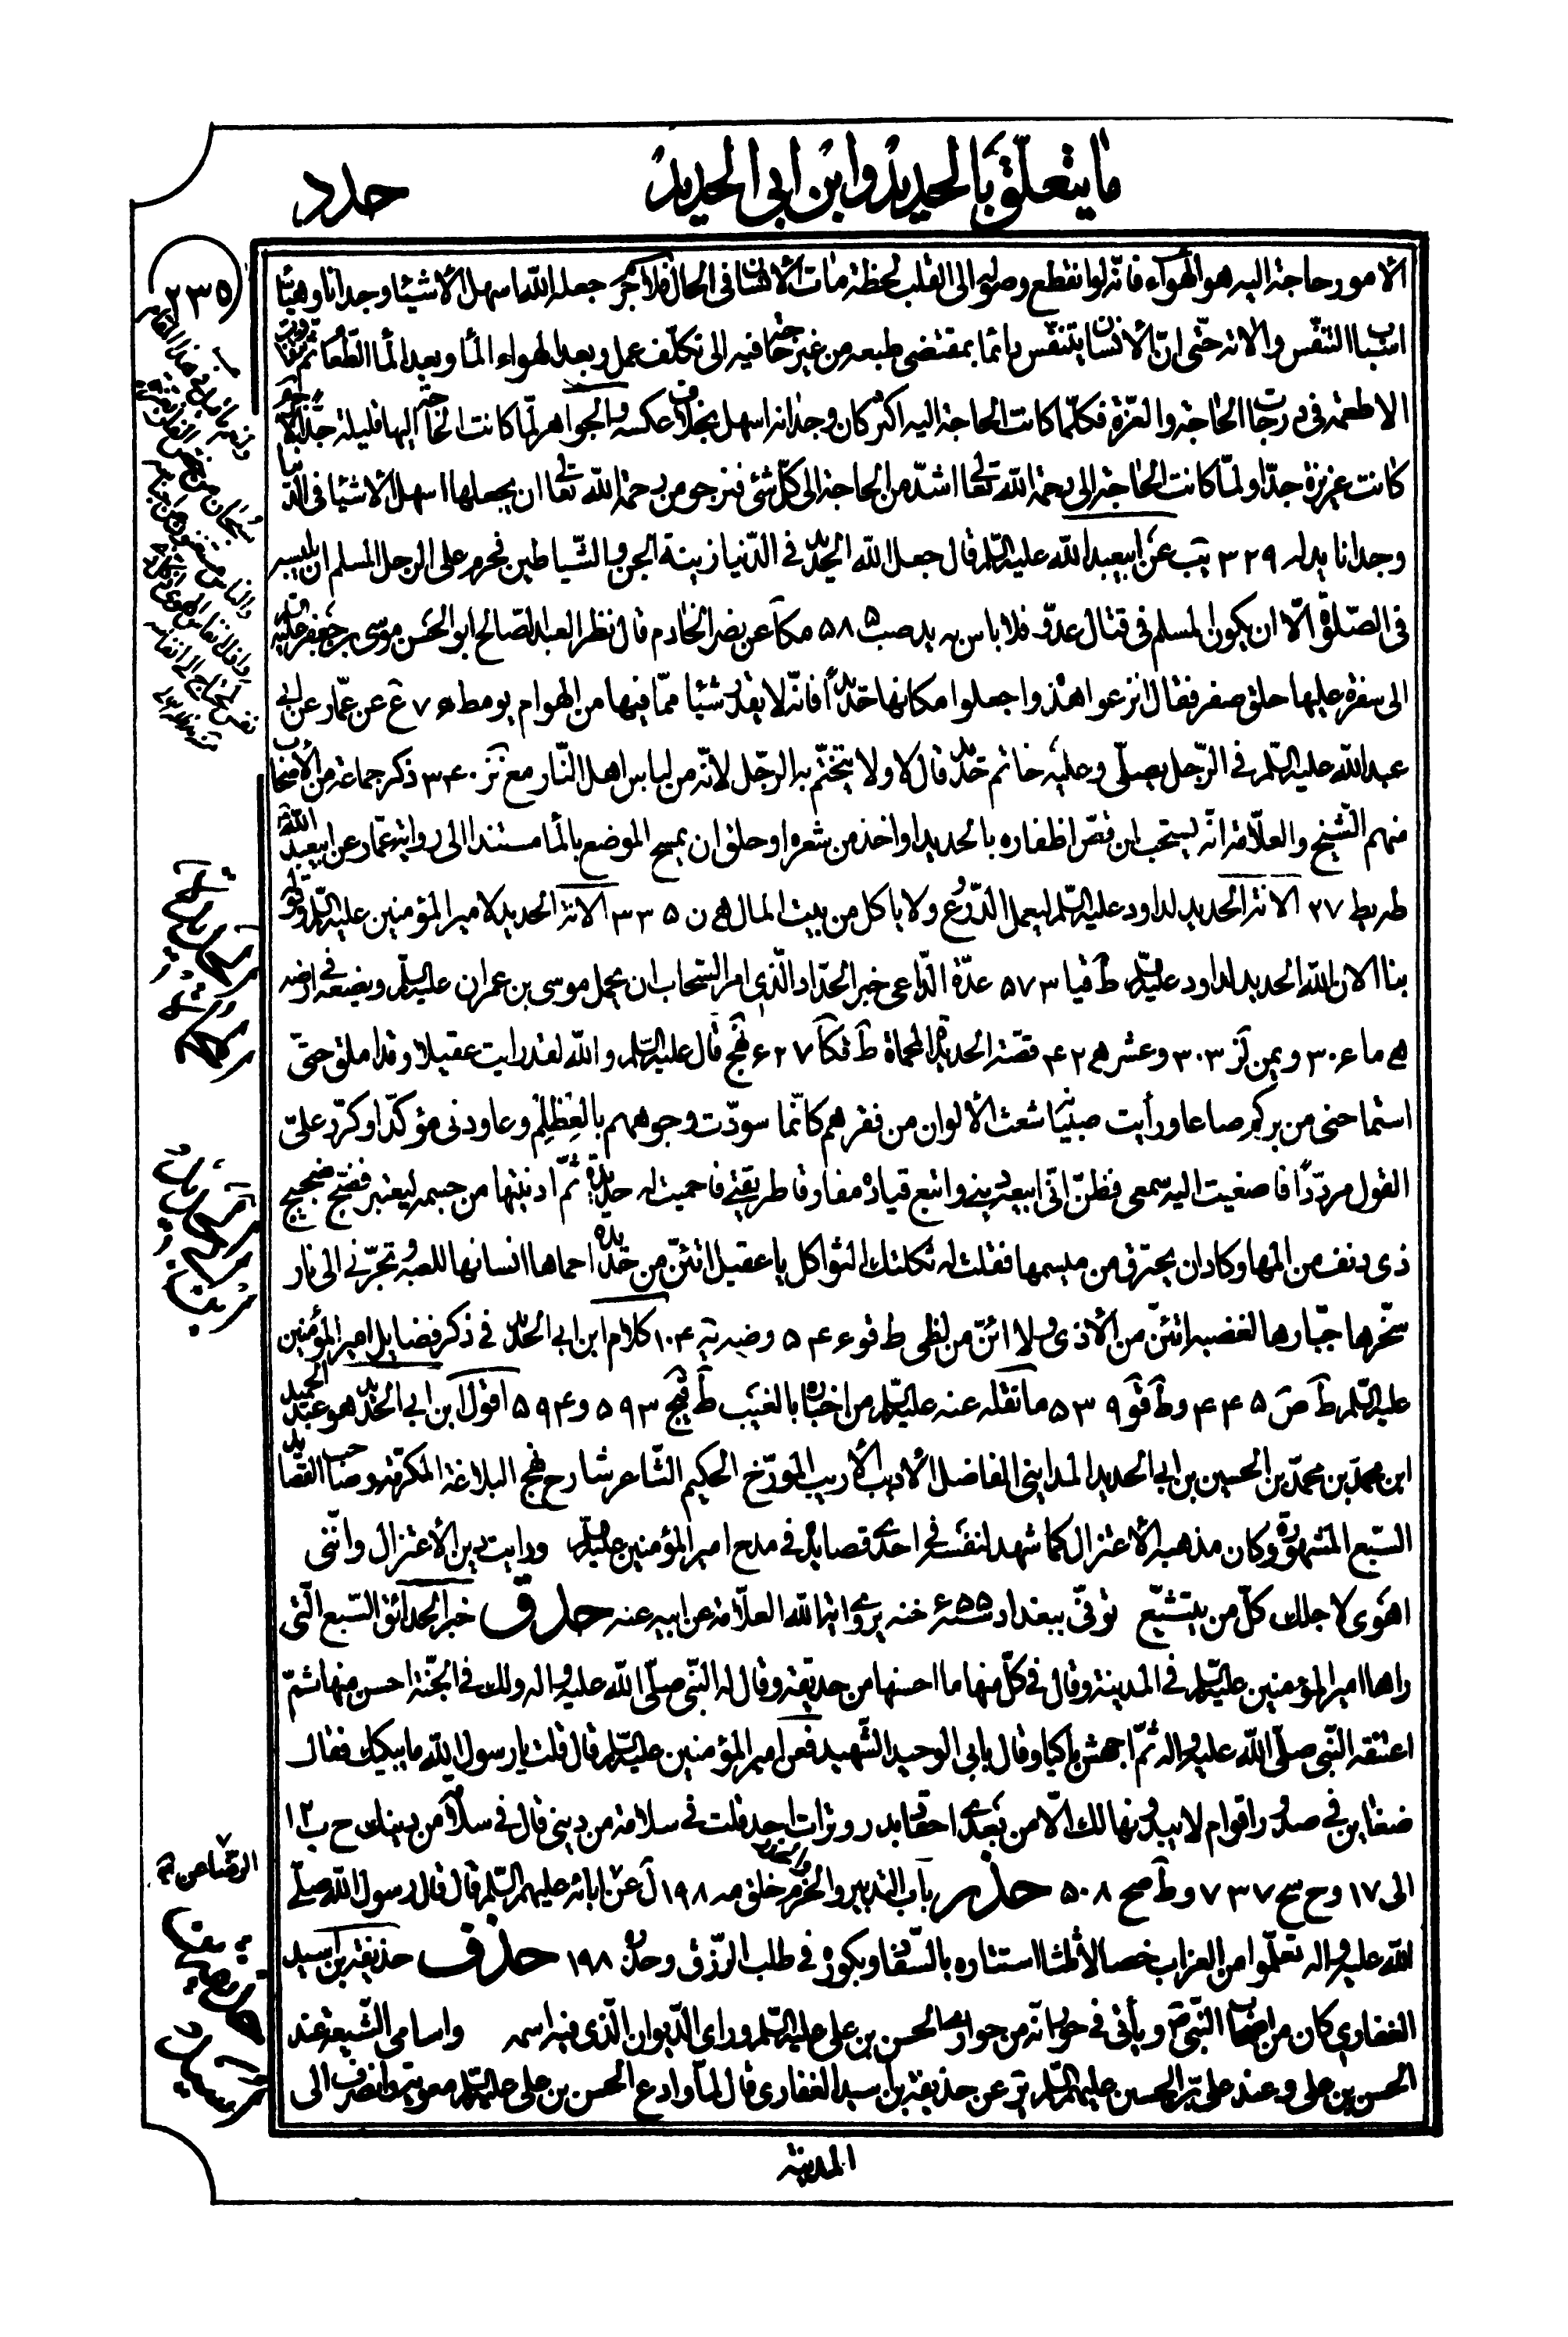 ما يتعلّق بالحديد وابن ابي الحديد
حدد
٢٣٥
الامور حاجة اليه هو الهواء فانّه لو انقطع وصوله الى القلب لحظة مات الانسان فى الحال فلا جرم جعله الله اسهل الاشياء وجدانا وهيّأ
اسباب التنفّس والاته حتّى انّ الانسان يتنفّس دائما بمقتضى طبعه من غير حاجة فيه الى تكلّف عمل وبعد الهواء الماء وبعد الماء الطعام ثم تتفاوت
الاطعمة فى درجات الحاجة والعزّة فكلّما كانت الحاجة اليه اكثر كان وجدانه اسهل بخلاف عكسه والجواهر لمّا كانت الحاجة اليها قليلة جدّا لا جرم
كانت عزيزة جدّا ولمّا كانت الحاجة الى رحمة الله تعالى اشدّ من الحاجة الى كلّ شئ فنرجو من رحمة الله تعالى ان يجعلها اسهل الاشياء فى الدّنيا
وجدانا يد له ٣٢٩ يب عن ابيعبد الله عليه السّلم قال جعل الله الحديد فى الدّنيا زينة الجن والشّياطين فحرم على الرجل المسلم ان يلبسه
فى الصّلوة الّا ان يكون المسلم فى قتال عدوّ فلا باس به يد صب ٥٨٥ مكا عن نصر الخادم قال نظر العبد الصّالح ابو الحسن موسى بن جعفر عليه السّلم
الى سفرة عليها حلق صفر فقال انزعوا هذه واجعلوا مكانها حديدا فانّه لا يقدر شيئا ممّا فيها من الهوام يو مط ٧٠٦ ع عن عمّار عن ابى
عبد الله عليه السّلم فى الرّجل يصلّى وعليه خاتم حديد قال لا ولا يتختّم به الرجّل لانّه من لباس اهل النّار مع نز ٣٤٠ ذكر جماعة من الاصحاب
منهم الشّيخ والعلّامة انّه يستحب لمن قصّ اظفاره بالحديد او اخذ من شعره او حلق ان يمسح الموضع بالماء مستندا الى رواية عمّار عن ابيعبد الله
طه يط ٢٧ الانة الحديد لداود عليه السّلم ليعمل الدّروع ولا ياكل من بيت المال هـ ن ٣٣٥ الانة الحديد لامير المؤمنين عليه السّلم وقوله
بنا الان الله الحديد لداود عليه السّلم ط قيا ٥٧٣ عدّة الدّاعى خبر الحدّاد الّذى امر السّحاب ان يحمل موسى بن عمران عليه السّلم ويضعه فى ارضه
هـ ما ٣٠٦ ويمن لز ٣٠٣ وعشر هـ ٤٢ قصّة الحديدة المحماة ط قكا ٦٢٧ نهج قال عليه السّلم والله لقد رايت عقيلا وقد املق حتّى
استماحنى من بركم صاعا ورأيت صبيانه شعث الالوان من فقرهم كانّما سودّت وجوههم بالعظلم وعاودنى مؤكّدا وكرّر علىّ
القول مردّدا فاصغيت اليه سمعى فظنّ انّى ابيعه دينى واتبع قياده مفارقا طريقتى فاحميت له حديدة ثمّ ادنيتها من جسمه ليعتبر فضجّ ضجيج
ذى دنف من المها وكاد ان يحترق من ميسمها فقلت له ثكلتك الثواكل يا عقيل اتئنّ من حديدة احماها انسانها للعبه وتجرّنى الى نار
سجّرها جبّارها لغضبه اتئنّ من الاذى ولا ائنّ من لظى ط قو ٥٤٦ وضه يه ١٠٤ كلام ابن ابى الحديد فى ذكر فضايل امير المؤمنين
عليه السّلم ط ص ٤٤٥ وط قو ٥٣٩ ما نقله عنه عليه السّلم من اخباره بالغيب ط قيج ٥٩٣ و ٥٩٤ اقول ابن ابى الحديد هو عبد الحميد
ابن محمّد بن محمّد بن الحسين بن ابى الحديد المدائنى الفاضل الاديب الاريب المورّخ الحكيم الشّاعر شارح نهج البلاغة المكرّمة وصاحب القصايد
السّبع المشهورة وكان مذهبه الاعتزال كما شهد لنفسه فى احدى قصايده فى مدح امير المؤمنين عليه السّلم ورايت دين الاعتزال وانّنى
اهوى لاجلك كلّ من يتشيّع توفّى ببغداد سنة ٦٥٥ خنه يروى اية الله العلّامة عن ابيه عنه حدق خبر الحدائق السّبع الّتى
راها امير المؤمنين عليه السّلم فى المدينة وقال فى كلّ منها ما احسنها من حديقة وقال له النّبى صلّى الله عليه واله ولك فى الجنّة احسن منها ثمّ
اعتنقه النّبى صلّى الله عليه واله ثمّ اجهش باكيا وقال بابى الوحيد الشّهيد فعن امير المؤمنين عليه السّلم قال قلت يا رسول الله ما يبكيك فقال
ضغاين فى صدور اقوام لا يبدونها لك الّا من بعدى احقاد بدر وترات احد قلت فى سلامة من دينى قال فى سلامة من دينك ح ب ١٢
الى ١٧ وح سح ٧٣٧ وط صح ٥٠٨ حذر باب التدبير والحزم والحذر خلق مه ١٩٨ ل عن ابائه عليهم السّلم قال قال رسول الله صلّى
الله عليه واله تعلّموا من الغراب خصالا ثلثا استتاره بالسّفاد وبكوره فى طلب الرّزق وحذره ١٩٨ حذف حذيفة بن اسيد
الغفارى كان من اصحاب النّبى ص ويأتى فى حور انّه من حوارى الحسن بن على عليه السّلم وراى الدّيوان الّذى فيه اسمه واسامى الشّيعة عند
الحسن بن على وعند على بن الحسين عليهم السّلم ير عن حذيفة بن اسيد الغفارى قال لمّا وادع الحسن بن على عليه السّلم معوية وانصرف الى
المدينة
الرّضا عن